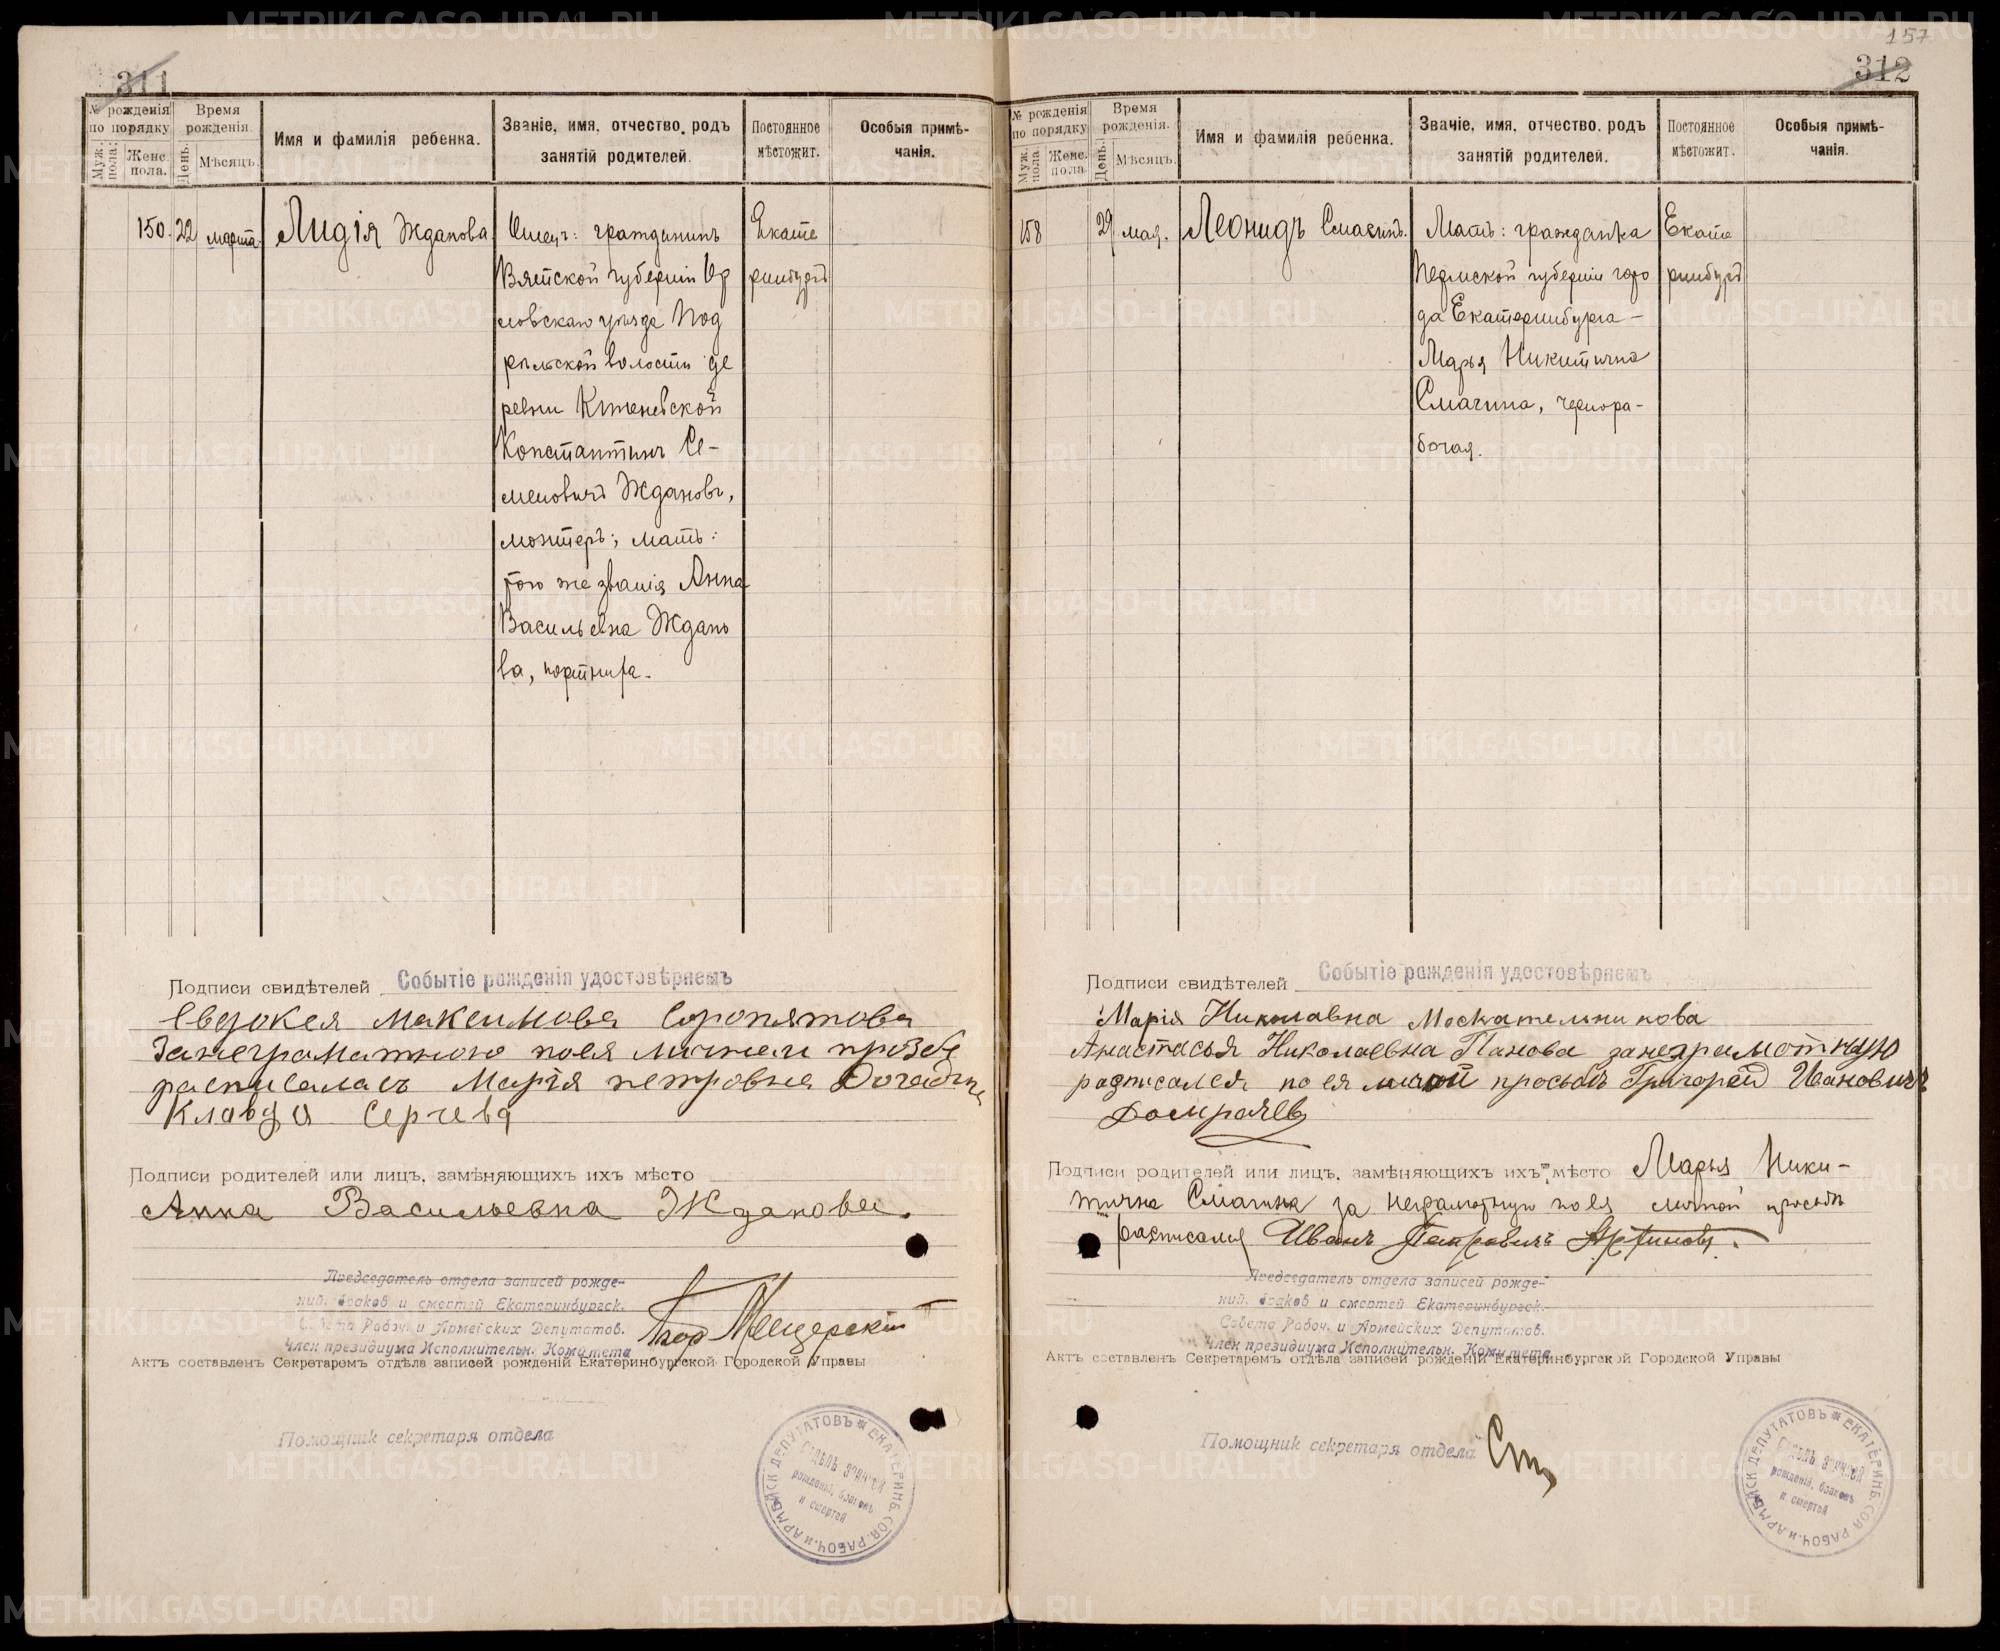 311
№ рожденія по порядку
Муж. пола.
Женс. пола.
Время рожденія.
День.
Мѣсяцъ.
Имя и фамилія ребенка.
Званіе, имя, отчество, родъ занятій родителей.
Постоянное мѣстожит.
Особыя примѣчанія.
150.
22
марта
Лидія Жданова
Отецъ: гражданинъ
Вятской губерніи Ор
ловскаго уѣзда Под
рельской волости де
ревни
Константинъ Се-
меновичъ Ждановъ,
монтеръ; мать:
того же званія Анна
Васильевна Ждано
ва, портниха.
Екате
ринбургъ
Подписи свидѣтелей Событіе рожденія удостовѣряемъ
Евдокея Максимова
занеграмотною поея личнеи прозбе
расписалась Марія петровна
Клавдия Сергева
Подписи родителей или лицъ, замѣняющихъ ихъ мѣсто
Анна Васильевна Жданова.
Председатель отдела записей рожде-
ний, браков и смертей Екатеринбургск.
Совета Рабоч. и Армейских Депутатов.
Член президиума Исполнительн. Комитета
Мещерскій
Актъ составленъ Секретаремъ отдѣла записей рожденій Екатеринбургской Городской Управы
Помощник секретаря отдела
ЕКАТЕРИНБ. СОВ. РАБОЧ. И АРМЕЙСК ДЕПУТАТОВЪ
Отдѣлъ записей
рожденій, браковъ
и смертей
157
312
№ рожденія по порядку
Муж. пола.
Женс. пола.
Время рожденія.
День.
Мѣсяцъ.
Имя и фамилія ребенка.
Званіе, имя, отчество, родъ занятій родителей.
Постоянное мѣстожит.
Особыя примѣчанія.
158
29
мая.
Леонидъ Смагинъ.
Мать: гражданка
Пермской губерніи горо
да Екатеринбурга -
Марья Никитична
Смагина, чернора-
бочая.
Екате
ринбургъ
Подписи свидѣтелей Событіе рожденія удостовѣряемъ
Марія Николавна Москательникова
Анастасья Николаевна Панова занеграмотную
расписался по ея личной просьбѣ Григорей Ивановичъ
Домрачев
Подписи родителей или лицъ, замѣняющихъ ихъ мѣсто Марья Ники-
тична Смагина за неграмотную поея личной просьбѣ
расписался Иванъ Петровичъ
Председатель отдела записей рожде-
ний, браков и смертей Екатеринбургск.
Совета Рабоч. и Армейских Депутатов.
Член президиума Исполнительн. Комитета
Актъ составленъ Секретаремъ отдѣла записей рожденій Екатеринбургской Городской Управы
Помощник секретаря отдела
ЕКАТЕРИНБ. СОВ. РАБОЧ. И АРМЕЙСК ДЕПУТАТОВЪ
Отдѣлъ записей
рожденій, браковъ
и смертей
METRIKI.GASO-URAL.RU